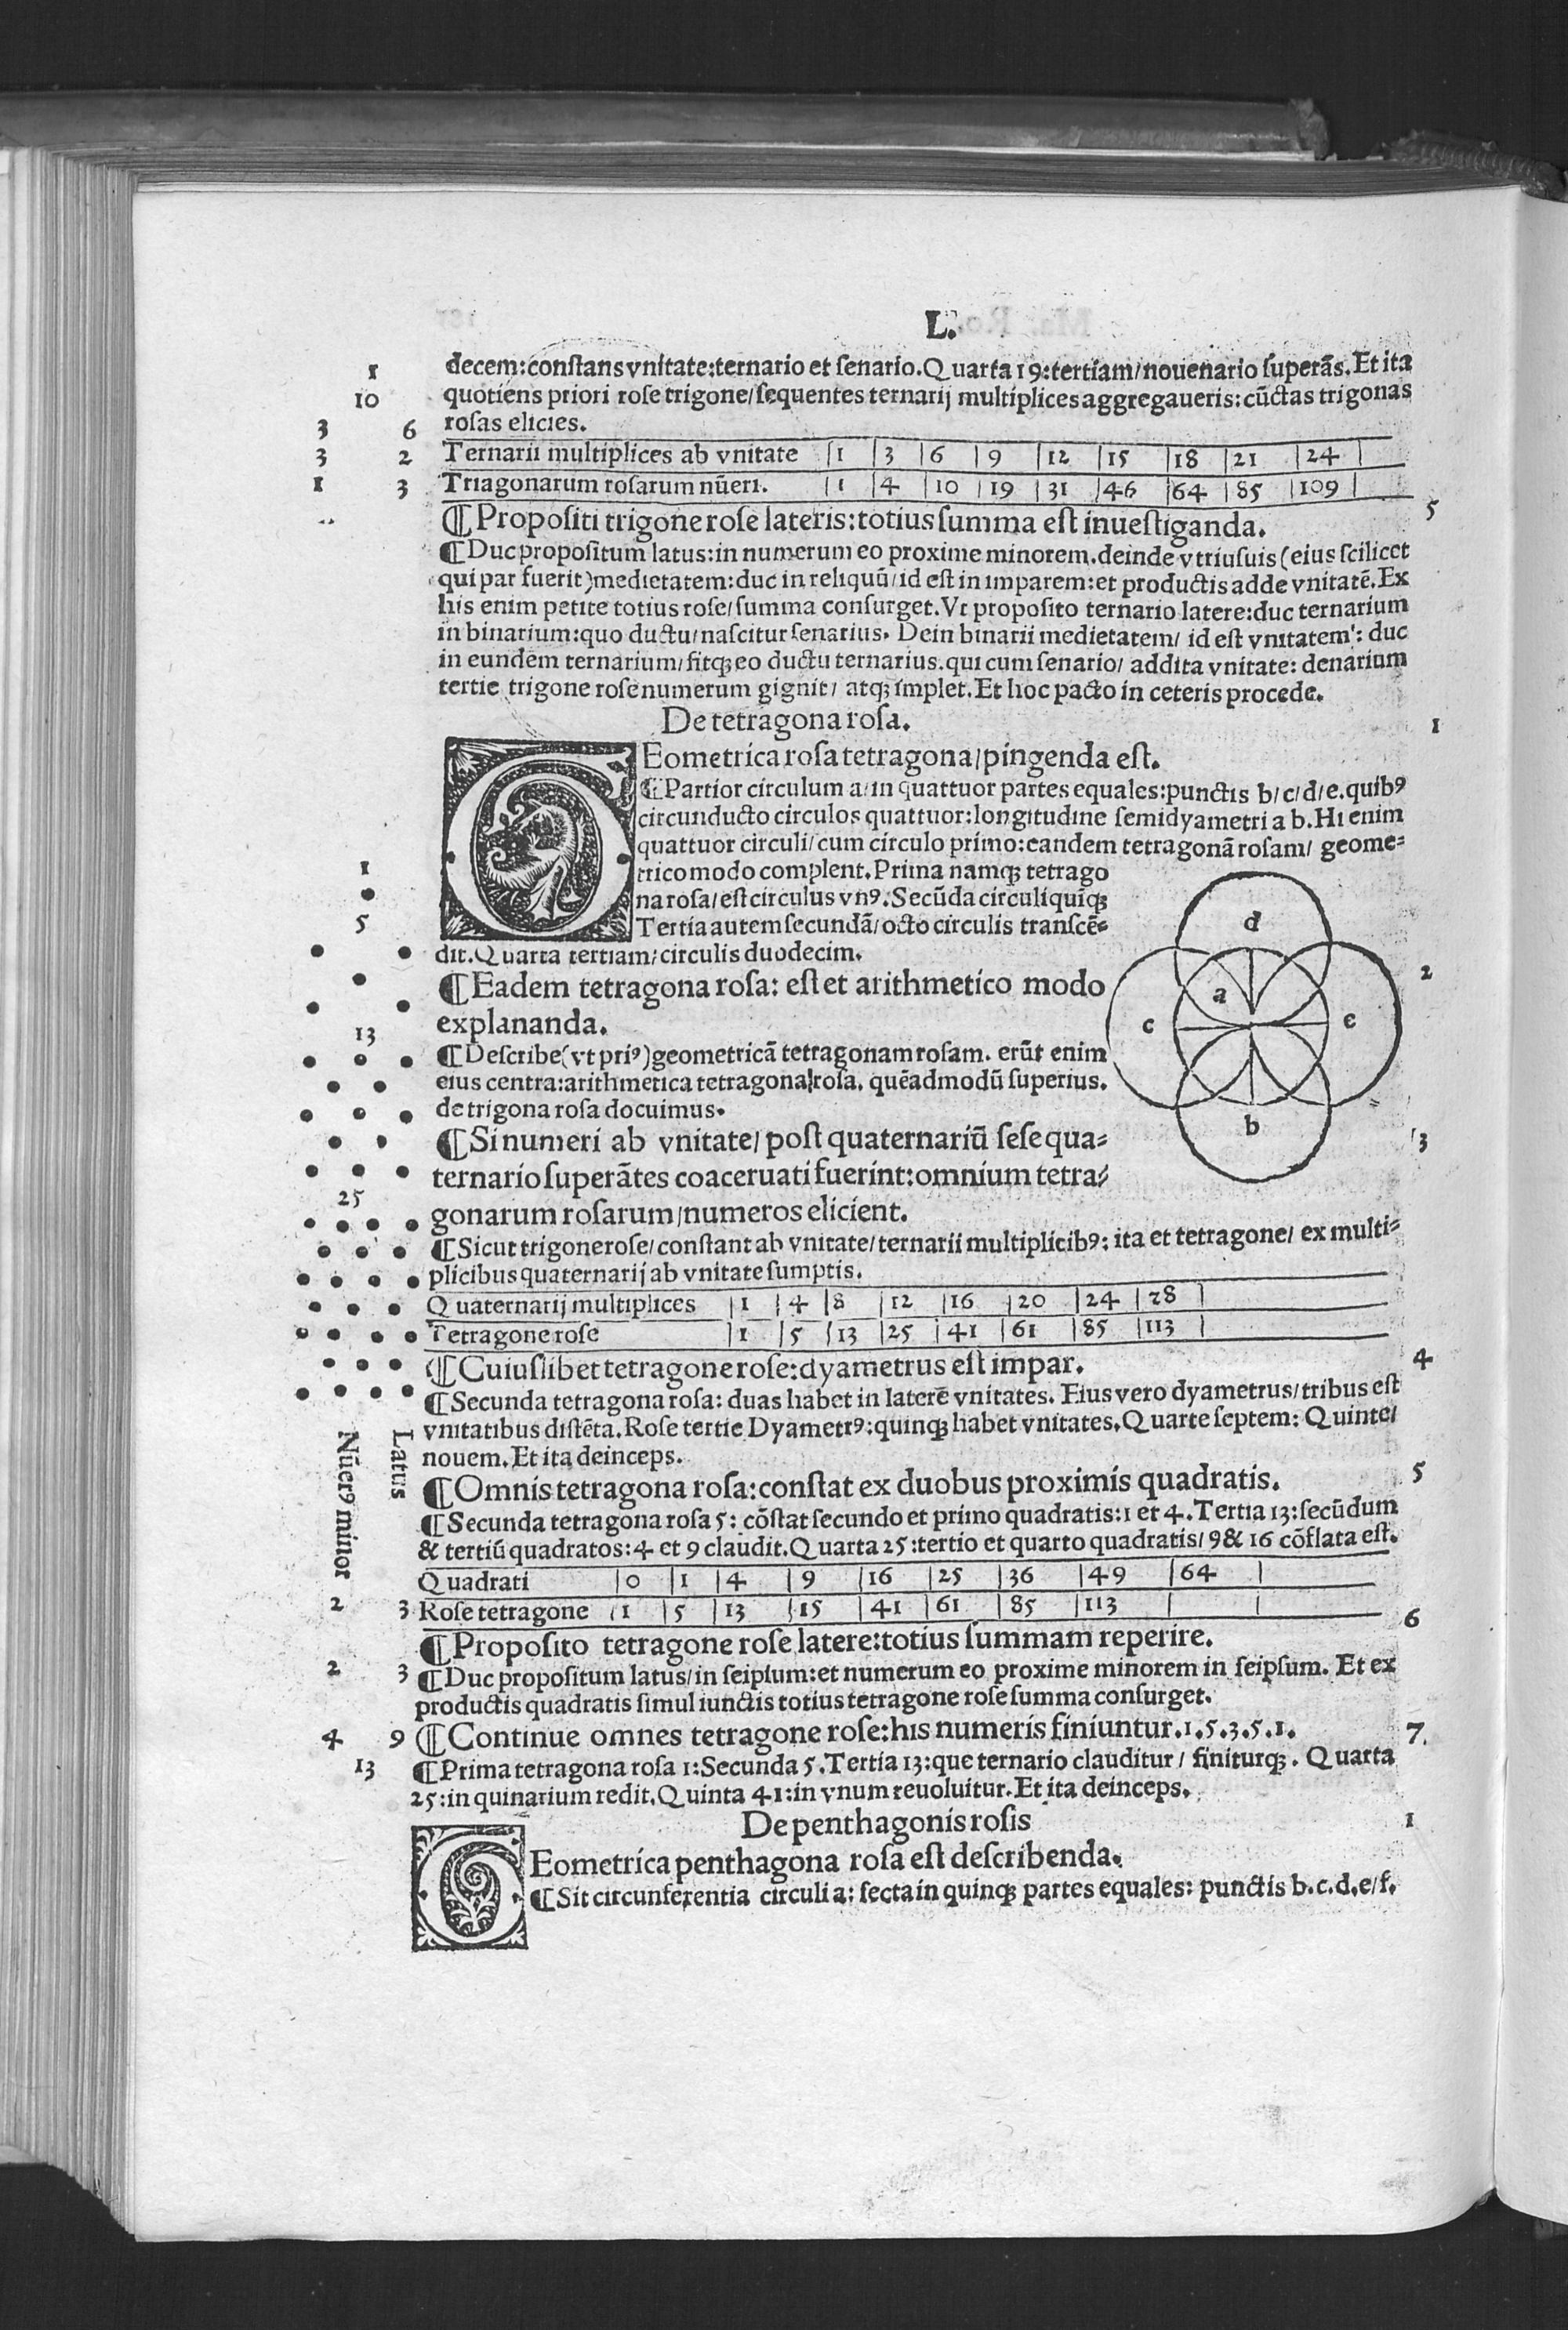 L.
decem:constans vnitate:ternario et senario.Quarta 19:tertiam/nouenario superãs.Et ita
quotiens priori rose trigone/sequentes ternarij multiplices aggregaueris:cũctas trigonas
rosas elicies.
Ternarii multiplices ab vnitate |1 |3 |6 |9 |12 |15 |18 |21 |24 |
Triagonarum rosarum nũeri. |1 |4 |10 |19 |31 |46 |64 |85 |109 |
¶Propositi trigone rose lateris:totius summa est inuestiganda. 5
¶Duc propositum latus:in numerum eo proxime minorem.deinde vtriusuis (eius scilicet
qui par fuerit)medietatem:duc in reliquũ/id est in imparem:et productis adde vnitatẽ.Ex
his enim petite totius rose/summa consurget.Vt proposito ternario latere:duc ternarium
in binarium:quo ductu/nascitur senarius. Dein binarii medietatem/ id est vnitatem: duc
in eundem ternarium/fitqꝫ eo ductu ternarius.qui cum senario/ addita vnitate: denarium
tertie trigone rose numerum gignit/ atqꝫ implet.Et hoc pacto in ceteris procede.
De tetragona rosa. 1
GEometrica rosa tetragona/pingenda est.
¶Partior circulum a/in quattuor partes equales:punctis b/c/d/e.quibꝰ
circunducto circulos quattuor:longitudine semidyametri a b.Hi enim
quattuor circuli/cum circulo primo:eandem tetragonã rosam/ geome⸗
trico modo complent.Prima namqꝫ tetrago
na rosa/est circulus vnꝰ.Secũda circuli quiqꝫ
Tertia autem secundã/octo circulis transcẽ⸗
dit.Quarta tertiam/circulis duodecim.
¶Eadem tetragona rosa: est et arithmetico modo 2
explananda.
¶Describe(vt priꝰ)geometricã tetragonam rosam. erũt enim
eius centra:arithmetica tetragona rosa. quẽadmodũ superius.
de trigona rosa docuimus.
¶Si numeri ab vnitate/ post quaternariũ sese qua⸗ 3
ternario superãtes coaceruati fuerint:omnium tetra⸗
gonarum rosarum/numeros elicient.
¶Sicut trigone rose/constant ab vnitate/ternarii multiplicibꝰ: ita et tetragone/ ex multi⸗
plicibus quaternarij ab vnitate sumptis.
Quaternarij multiplices |1 |4 |8 |12 |16 |20 |24 |28 |
Tetragone rose |1 |5 |13 |25 |41 |61 |85 |113 |
¶Cuiuslibet tetragone rose:dyametrus est impar. 4
¶Secunda tetragona rosa: duas habet in laterẽ vnitates. Eius vero dyametrus/tribus est
vnitatibus distẽta.Rose tertie Dyametrꝰ:quinqꝫ habet vnitates.Quarte septem: Quinte/
nouem.Et ita deinceps.
¶Omnis tetragona rosa:constat ex duobus proximis quadratis. 5
¶Secunda tetragona rosa 5: cõstat secundo et primo quadratis:1 et 4.Tertia 13:secũdum
& tertiũ quadratos:4 et 9 claudit.Quarta 25:tertio et quarto quadratis/ 9& 16 cõflata est.
Quadrati |0 |1 |4 |9 |16 |25 |36 |49 |64 |
Rose tetragone |1 |5 |13 |15 |41 |61 |85 |113 | |
¶Proposito tetragone rose latere:totius summam reperire. 6
¶Duc propositum latus/in seipsum:et numerum eo proxime minorem in seipsum. Et ex
productis quadratis simul iunctis totius tetragone rose summa consurget.
¶Continue omnes tetragone rose:his numeris finiuntur.1.5.3.5.1. 7.
¶Prima tetragona rosa 1:Secunda 5.Tertia 13:que ternario clauditur/ finiturqꝫ. Quarta
25:in quinarium redit.Quinta 41:in vnum reuoluitur.Et ita deinceps.
De penthagonis rosis 1
GEometrica penthagona rosa est describenda.
¶Sit circunferentia circuli a: secta in quinqꝫ partes equales: punctis b.c.d.e/f.
1
10
3 6
3 2
1 3
1
5
13
25
Latus
Nũerꝰ minor
2 3
2 3
4 9
13
d
a
c
e
b